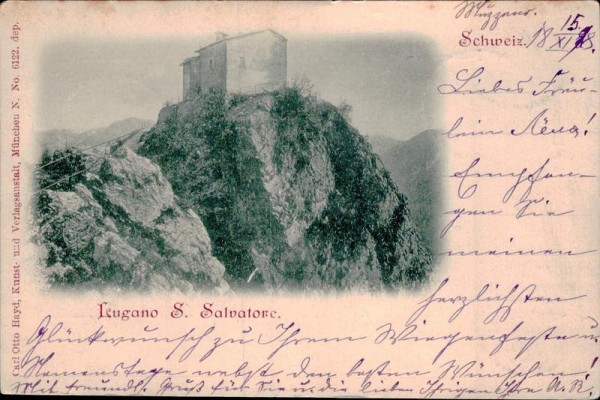 Carl Otto Hayd, Kunst- und Verlagsanstalt, München N. No. 6122. dep.
Muzzano.
Schweiz. 18 15./XI 98.
Liebes Fräu-
lein Lola!
Empfan-
gen Sie
meinen
herzlichsten
Lugano S. Salvatore.
Glückwunsch zu Ihrem Wiegenfeste u.
Namenstage nebst den besten Wünschen!
Mit freundl. Gruß für Sie u. die lieben Ihrigen Ihre A. R.